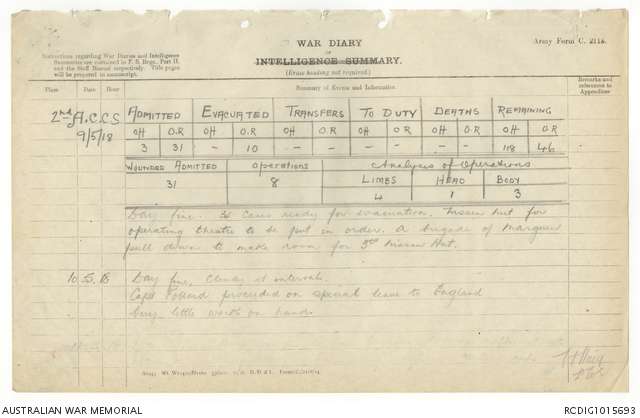 WAR DIARY
or
INTELLIGENCE SUMMARY.
(Erase heading not required.)
Army Form C. 2118.
Instructions regarding War Diaries and Intelligence
Summaries are contained in F. S. Regs., Part II.
and the Staff Manual respectively. Title pages
will be prepared in manuscript.
Place Date Hour Summary of Events and Information Remarks and references to Appendices
2nd A.C.C.S
9/5/18
ADMITTED EVACUATED TRANSFERS TO DUTY DEATHS REMAINING
OH O.R OH O.R OH O.R OH O.R OH O.R OH O.R
3 31 - 10 - - - - - - 46
WOUNDED ADMITTED Operations Analysis of Operations
31 8 LIMBS HEAD BODY
4 1 3
Day fine. cases ready for evacuation. Nissen hut for
operating theatre to be put in order. A brigade of Marquee
pull down to make room for 3rd Nissen Hut.
10 5 18 Day fine, Cloudy at intervals.
Capt Pollard proceeded on special leave to England
Very little work on hand.
AUSTRALIAN WAR MEMORIAL
RCDIG1015693